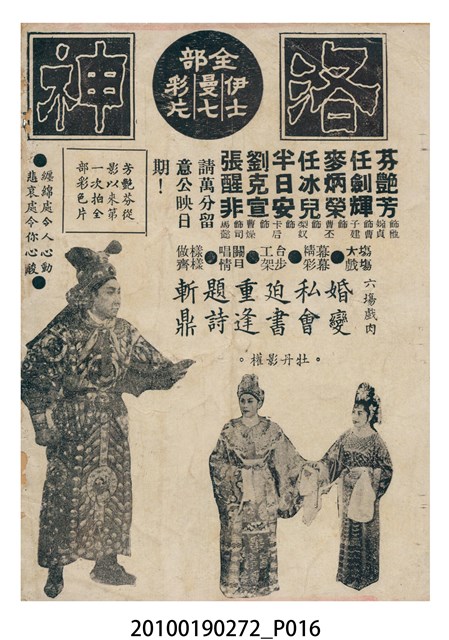 洛神
全部
伊士曼七彩片
芳艷芬
任劍輝 飾曹子建
麥炳榮 飾曹丕
任冰兒
半日安
劉克宣
張醒非 飾司馬懿
請萬分留
意公映日
期！
場場大戲
幕幕精彩
台步工架
關目唱情
樣樣做齊
六場戲肉
婚變
私會
迫書
重逢
題詩
斬鼎
牡丹影權
芳艷芬從
影以來第
一次拍全
部彩色片
纏綿處令人心動
悲哀處令你心酸
20100190272_P016